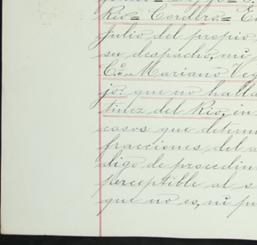 Rio= Cordero= En
Julio del propio
su despacho, mi
C. Mariano Veg
jo; que no habla
tinez del Rio, en
casos que determi
fracciones del a
digo de procedim
perceptible al s
que no es, ni pu